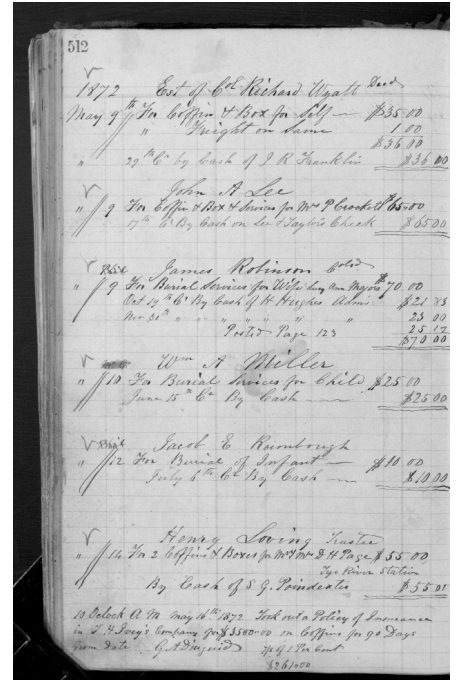 512
1872 Est of Col Richard Wyatt Decd
May 9th For Coffin & Box for Self — $35 00
" Freight on Same 1 00
$36 00
" 29th Cr by Cash of J R Franklin $36 00
John A Lee
" 9 For Coffin & Box & Services for Mrs P Crockett $65 00
17th Cr By Cash on Lee & Taylor's Check $65 00
James Robinson Cold
" 9 For Burial Services for Wife Lucy Ann Myers $70 00
Oct 19th Cr By Cash of H Hughes Adms $21 83
Nov 30th " " " " " " 23 00
Posted Page 123 25 17
$70 00
Wm A Miller
" 10 For Burial Services for Child $25 00
June 15th Cr By Cash — $25 00
Jacob E Roumbough
" 12 For Burial of Infant — $10 00
July 6th Cr By Cash — $10 00
Henry Loving Trustee
" 14 For 2 Coffins & Boxes for Mr & Mrs D H Page $55 00
Tye River Station
By Cash of S. G. Poindexter $55 00
10 Oclock A M May 16th 1872 Took out a Policy of Insurance
in T. H. Ivey's Company for $3500.00 on Coffins for 90 Days
From Date G. A. Diuguid of 1 Per Cent